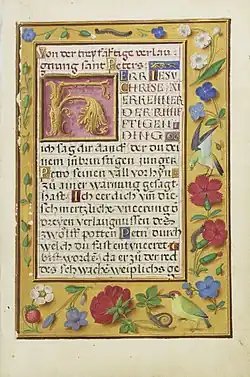 Von der treyfaltige verlau
gnung sant Peters
HERR IESV
CHRISE AI
ERKENNER
DER KHVNF
FTIGEN
DING
ich sag dir danck der du dei
nem inbrunstigen junger
Petro seinen vall vor hyn
zu ainer warnung gesagt
hast Ich eer dich vm die
schmertzliche
dreyen verlaugnussen des
zwolff poten Petri durch
welch du fast entuneeret
bist worden da er zu der red
des schwachē weiplichs ge